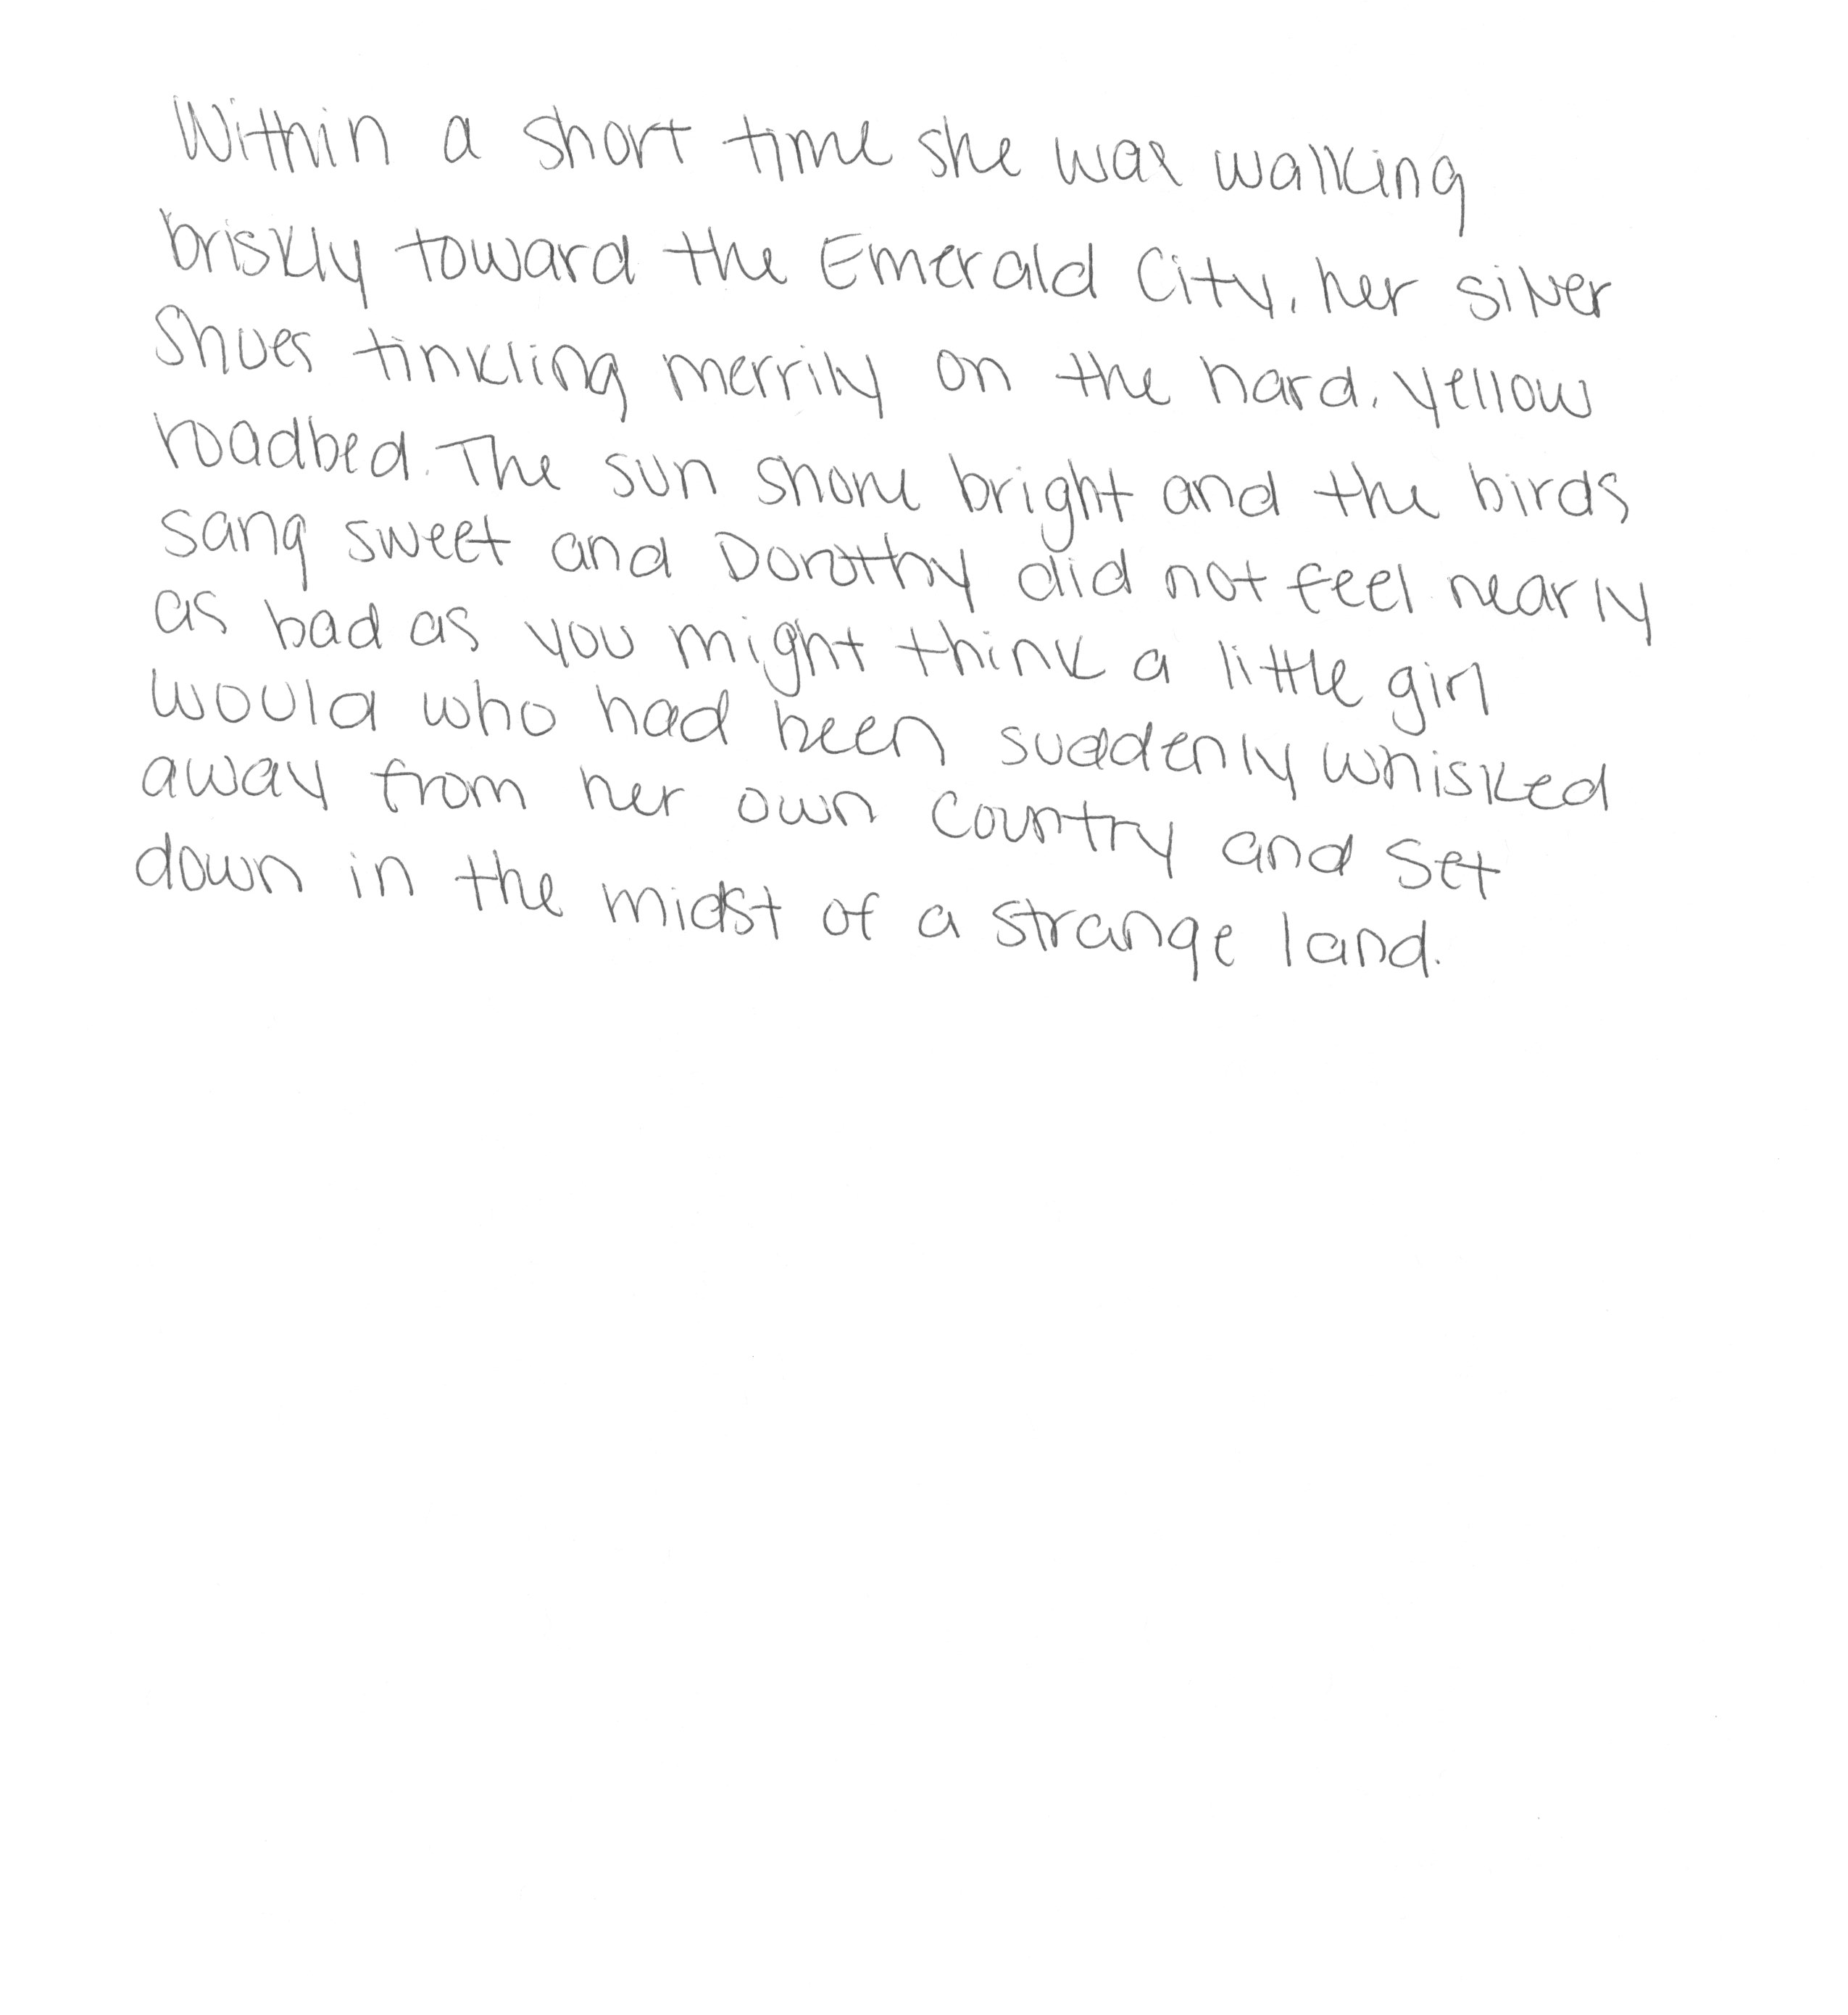 Within a short time she was walking
briskly toward the Emerald City, her silver
Shoes tinkling merrily on the hard, yellow
roadbed. The sun shone bright and the birds
sang sweet and Dorothy did not feel nearly
as bad as you might think a little girl
would who had been suddenly whisked
away from her own country and set
down in the midst of a strange land.